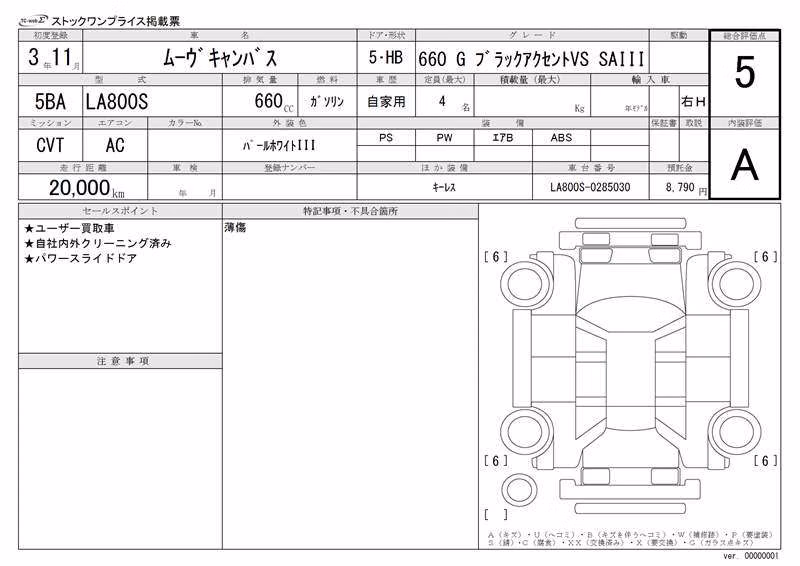 TC-webΣ ストックワンプライス掲載票
初度登録 車名 ドア・形状 グレード 駆動 総合評価点
3年11月 ムーヴキャンバス 5・HB 660 G ブラックアクセントVS SAIII 5
型式 排気量 燃料 車歴 定員(最大) 積載量(最大) 輸入車
5BA LA800S 660CC ガソリン 自家用 4名 Kg 年モデル 右H
ミッション エアコン カラーNo. 外装色 装備 保証書 取説 内装評価
CVT AC パールホワイトIII PS PW エアB ABS A
走行距離 車検 登録ナンバー ほか装備 車台番号 預託金
20,000km 年 月 キーレス LA800S-0285030 8,790円
セールスポイント 特記事項・不具合箇所
★ユーザー買取車 薄傷
★自社内外クリーニング済み
★パワースライドドア
注意事項
[6] [6]
[6] [6]
[ ]
A(キズ)・U(ヘコミ)・B(キズを伴うヘコミ)・W(補修跡)・P(要塗装)
S(錆)・C(腐食)・XX(交換済み)・X(要交換)・G(ガラス点キズ)
ver. 00000001